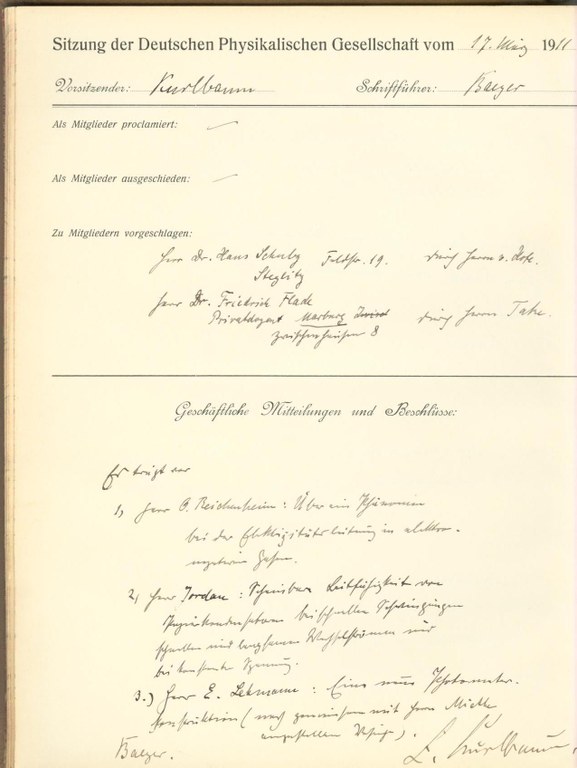 Sitzung der Deutschen Physikalischen Gesellschaft vom 17. März 1911
Vorsitzender: Kurlbaum Schriftführer: Baeyer
Als Mitglieder proclamiert: —
Als Mitglieder ausgeschieden: —
Zu Mitgliedern vorgeschlagen:
Herr Dr. Hans Schulz Feldstr. 19. durch Herrn v.
Steglitz
Herr Dr. Friedrich Flade
Privatdozent Marburg durch Herrn Take.
8
Geschäftliche Mitteilungen und Beschlüsse:
Es trägt vor
1, Herr O. Reichenheim: Über ein Phänomen
bei der Elektrizitätsleitung in elektro-
negativen Gasen.
2, Herr Jordan: Scheinbare Leitfähigkeit von
Papierkondensatoren bei schnellen Schwingungen
schnellen und langsamen Wechselströmen und
bei konstanter Spannung.
3.) Herr E. Lehmann: Eine neue Photometer-
konstruktion (nach gemeinsam mit Herrn
angestellten).
Baeyer. F. Kurlbaum.